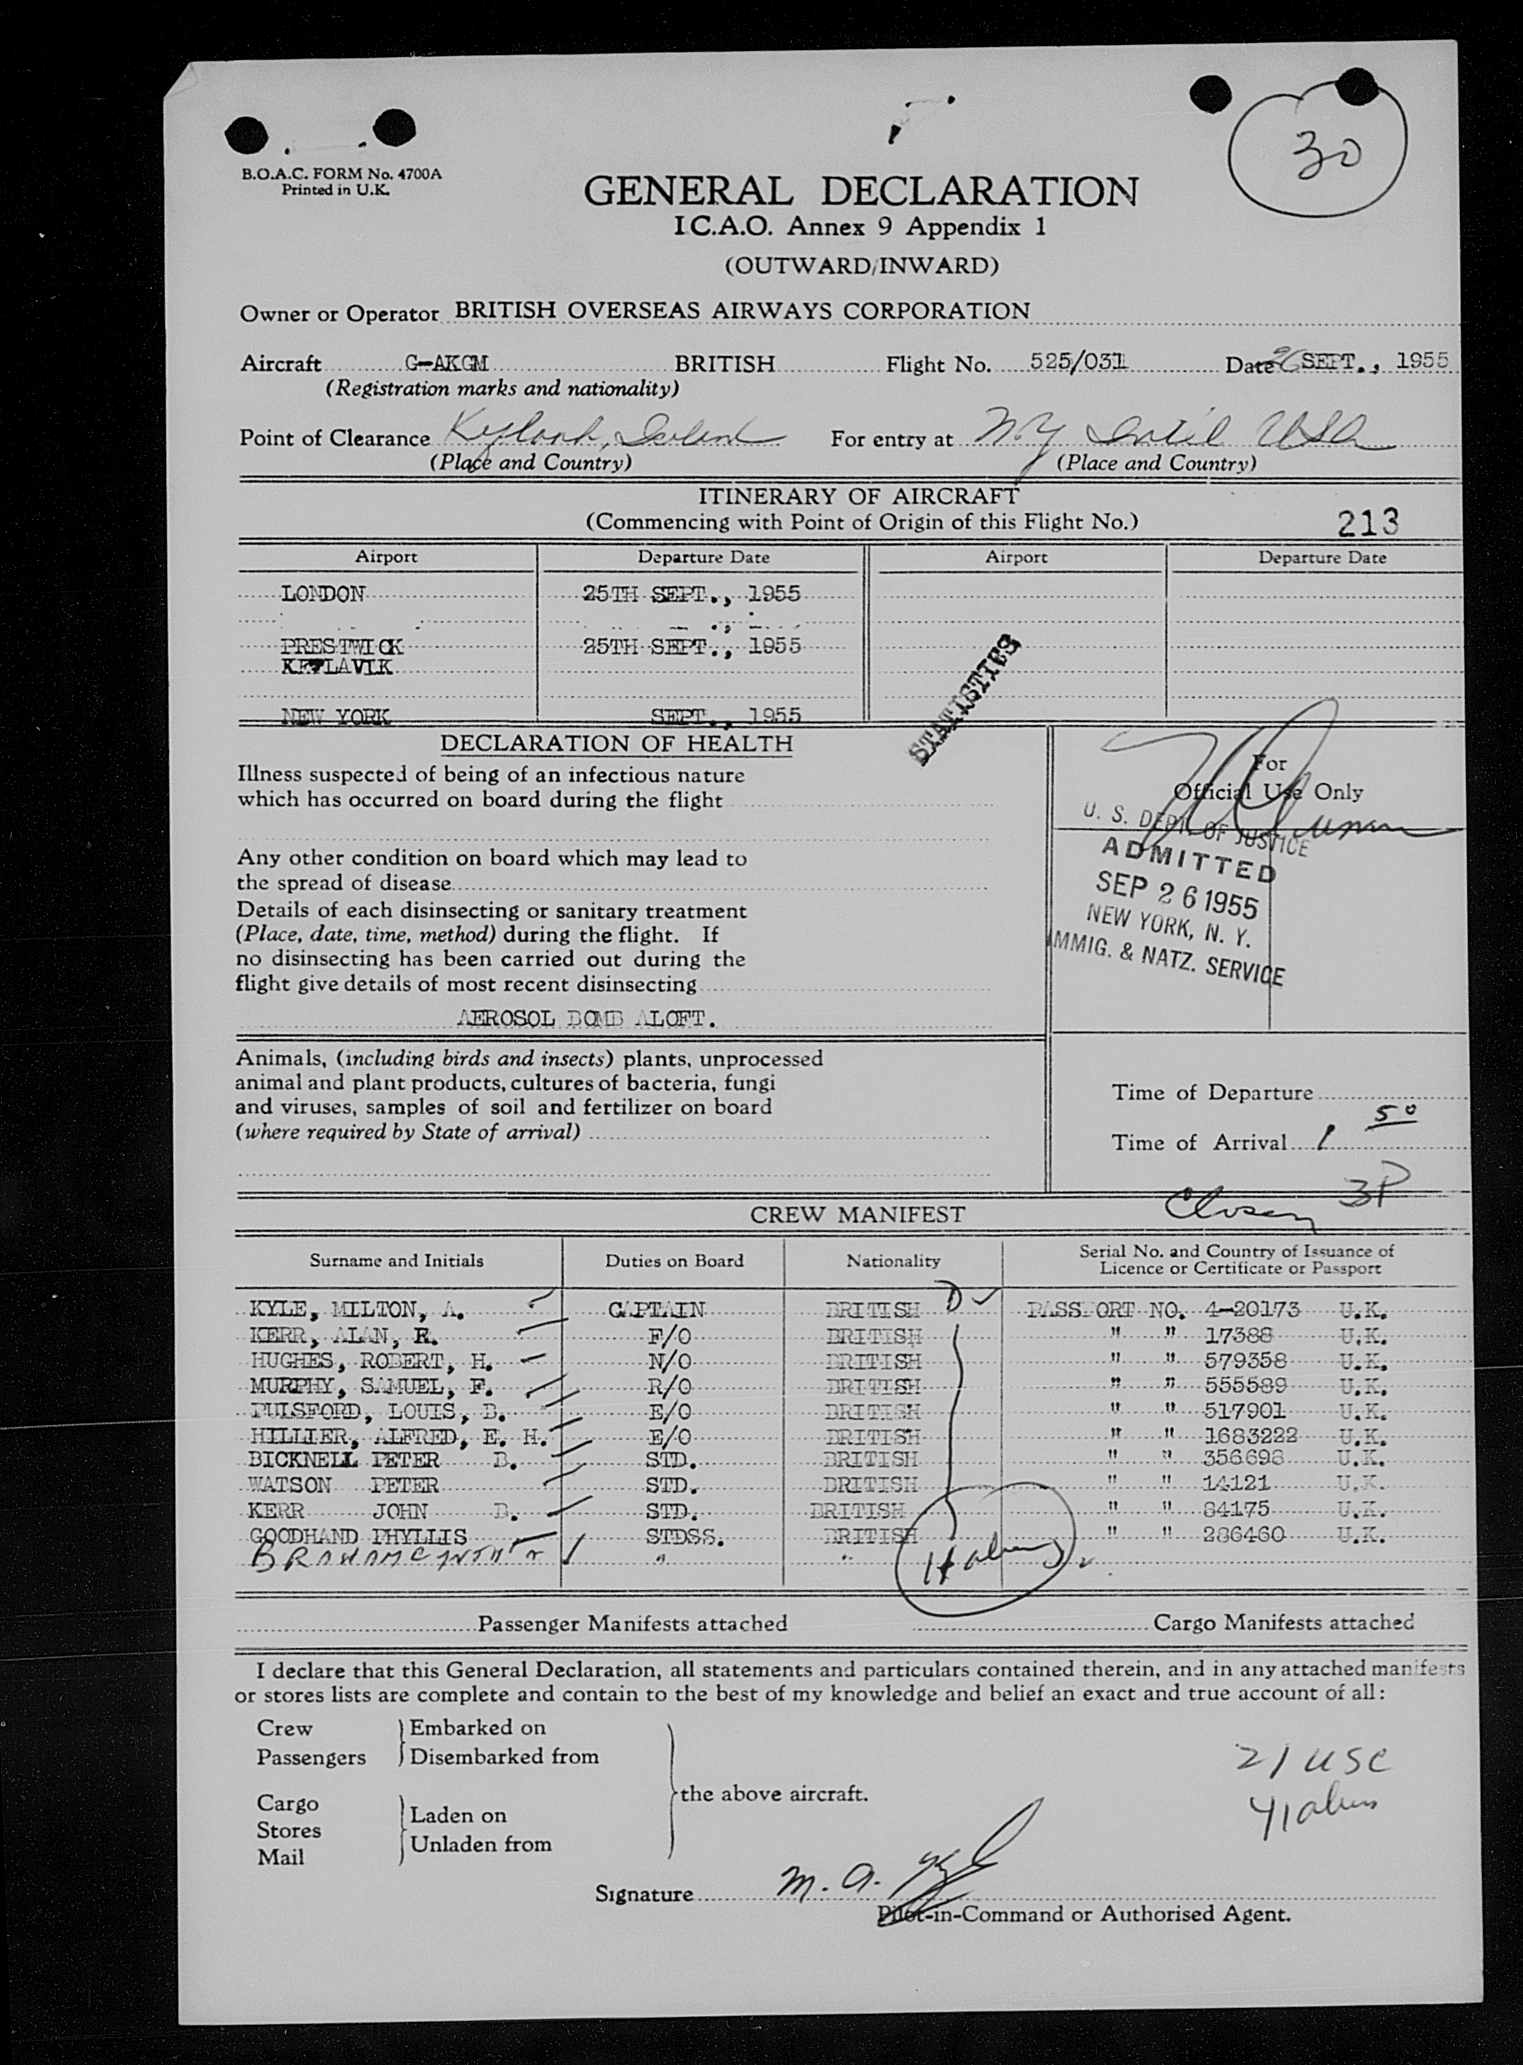 30
B.O.A.C. FORM No. 4700A
Printed in U.K.
GENERAL DECLARATION
I.C.A.O. Annex 9 Appendix 1
(OUTWARD/INWARD)
Owner or Operator BRITISH OVERSEAS AIRWAYS CORPORATION
Aircraft G-AKGM BRITISH Flight No. 525/031 Date 26 SEPT., 1955
(Registration marks and nationality)
Point of Clearance For entry at N.Y. USA
(Place and Country) (Place and Country)
ITINERARY OF AIRCRAFT
(Commencing with Point of Origin of this Flight No.) 213
Airport Departure Date Airport Departure Date
LONDON 25TH SEPT., 1955
PRESTWICK 25TH SEPT., 1955
KEFLAVIK
NEW YORK SEPT., 1955
STATISTICS
DECLARATION OF HEALTH
Illness suspected of being of an infectious nature
which has occurred on board during the flight
Any other condition on board which may lead to
the spread of disease
Details of each disinsecting or sanitary treatment
(Place, date, time, method) during the flight. If
no disinsecting has been carried out during the
flight give details of most recent disinsecting
AEROSOL BOMB ALOFT.
For
Official Use Only
U. S. DEPT. OF JUSTICE
ADMITTED
SEP 26 1955
NEW YORK, N. Y.
IMMIG. & NATZ. SERVICE
Animals, (including birds and insects) plants, unprocessed
animal and plant products, cultures of bacteria, fungi
and viruses, samples of soil and fertilizer on board
(where required by State of arrival)
Time of Departure
Time of Arrival 1 50
3P
CREW MANIFEST
Surname and Initials Duties on Board Nationality Serial No. and Country of Issuance of
Licence or Certificate or Passport
KYLE, MILTON, A. CAPTAIN BRITISH D PASSPORT NO. 4-20173 U.K.
KERR, ALAN, R. F/O BRITISH " " 17388 U.K.
HUGHES, ROBERT, H. N/O BRITISH " " 579358 U.K.
MURPHY, SAMUEL, F. R/O BRITISH " " 555589 U.K.
PULSFORD, LOUIS, B. E/O BRITISH " " 517901 U.K.
HILLIER, ALFRED, E. H. E/O BRITISH " " 1683222 U.K.
BICKNELL PETER B. STD. BRITISH " " 356698 U.K.
WATSON PETER STD. BRITISH " " 14121 U.K.
KERR JOHN B. STD. BRITISH " " 84175 U.K.
GOODHAND PHYLLIS STDSS. BRITISH " " 286460 U.K.
" "
Passenger Manifests attached Cargo Manifests attached
I declare that this General Declaration, all statements and particulars contained therein, and in any attached manifests
or stores lists are complete and contain to the best of my knowledge and belief an exact and true account of all:
Crew Embarked on
Passengers Disembarked from
the above aircraft.
Cargo Laden on
Stores Unladen from
Mail
21 USC
41 aliens
Signature M. A. Kyle
Pilot-in-Command or Authorised Agent.